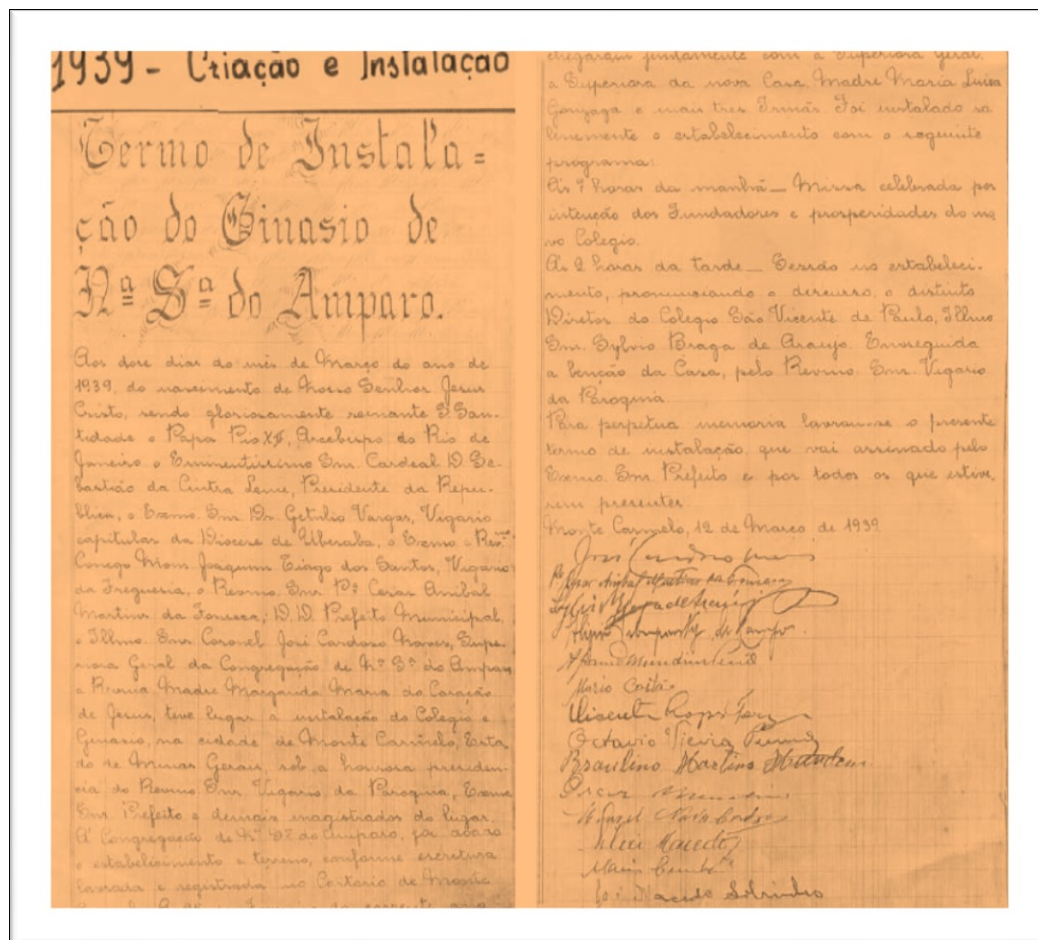 1939 - Criação e Instalação
Termo de Instala=
ção do Ginasio de
Nª Sª do Amparo.
Aos dose dias do mês de Março do ano de
1939, do nascimento de Nosso Senhor Jesus
Cristo, sendo gloriosamente reinante S. San-
tidade o Papa Pio XII, Arcebispo do Rio de
Janeiro o Eminentissimo Snr. Cardeal D. Se-
bastião da Cintra Leme, Presidente da Repu-
blica, o Exmo. Snr. Dr. Getulio Vargas, Vigario
capitular da Diocese de Uberaba, o Exmo e Revmo
Conego Mons. Joaquim Tiago dos Santos, Vigario
da Freguesia, o Revmo. Snr. Pe. Cesar Anibal
Martins da Fonseca; D.D. Prefeito Municipal,
o Illmo. Snr. Coronel José Cardoso Naves, Supe-
riora Geral da Congregação de Nª Sª do Amparo
a Revma. Madre Margarida Maria do Coração
de Jesus, teve lugar a instalação do Colegio e
Ginasio, na cidade de Monte Carmelo, Esta
do de Minas Gerais, sob a honrosa presiden-
cia do Revmo Snr. Vigario, da Paroquia, Exmo
Snr. Prefeito e demais magistrados do lugar.
A Congregação de Nª Sª do Amparo, foi doado
o estabelecimento e terreno, conforme escritura
lavrada e registrada no Cartorio de Monte
chegaram juntamente com a Superiora Geral,
a Superiora da nova Casa, Madre Maria Luisa
Gonzaga e mais tres Irmãs. Foi instalado so
linemente o estabelecimento com o seguinte
programa:
Ás 7 horas da manhã — Missa celebrada por
intenção dos Fundadores e prosperidades do no
vo Colegio.
Ás 2 horas da tarde — Sessão no estabeleci-
mento, pronunciando o discurso, o distinto
Diretor do Colegio São Vicente de Paulo, Illmo
Snr. Sylvio Braga de Araujo. Emseguida
a benção da Casa, pelo Revmo Snr. Vigario
da Paroquia.
Para perpetua memoria lavrou-se o presente
termo de instalação que vai assinado pelo
Exmo. Snr. Prefeito e por todos os que estive,
rem presentes.
Monte Carmelo, 12 de Março de 1939
José Cardoso Naves
Pe. Cesar Anibal Martins da Fonseca
Sylvio Braga de Araujo
Mario Costa
Vicente Lopes
Octavio Vieira
Braulino Martins Mundim
Oscar
José Macedo Sobrinho